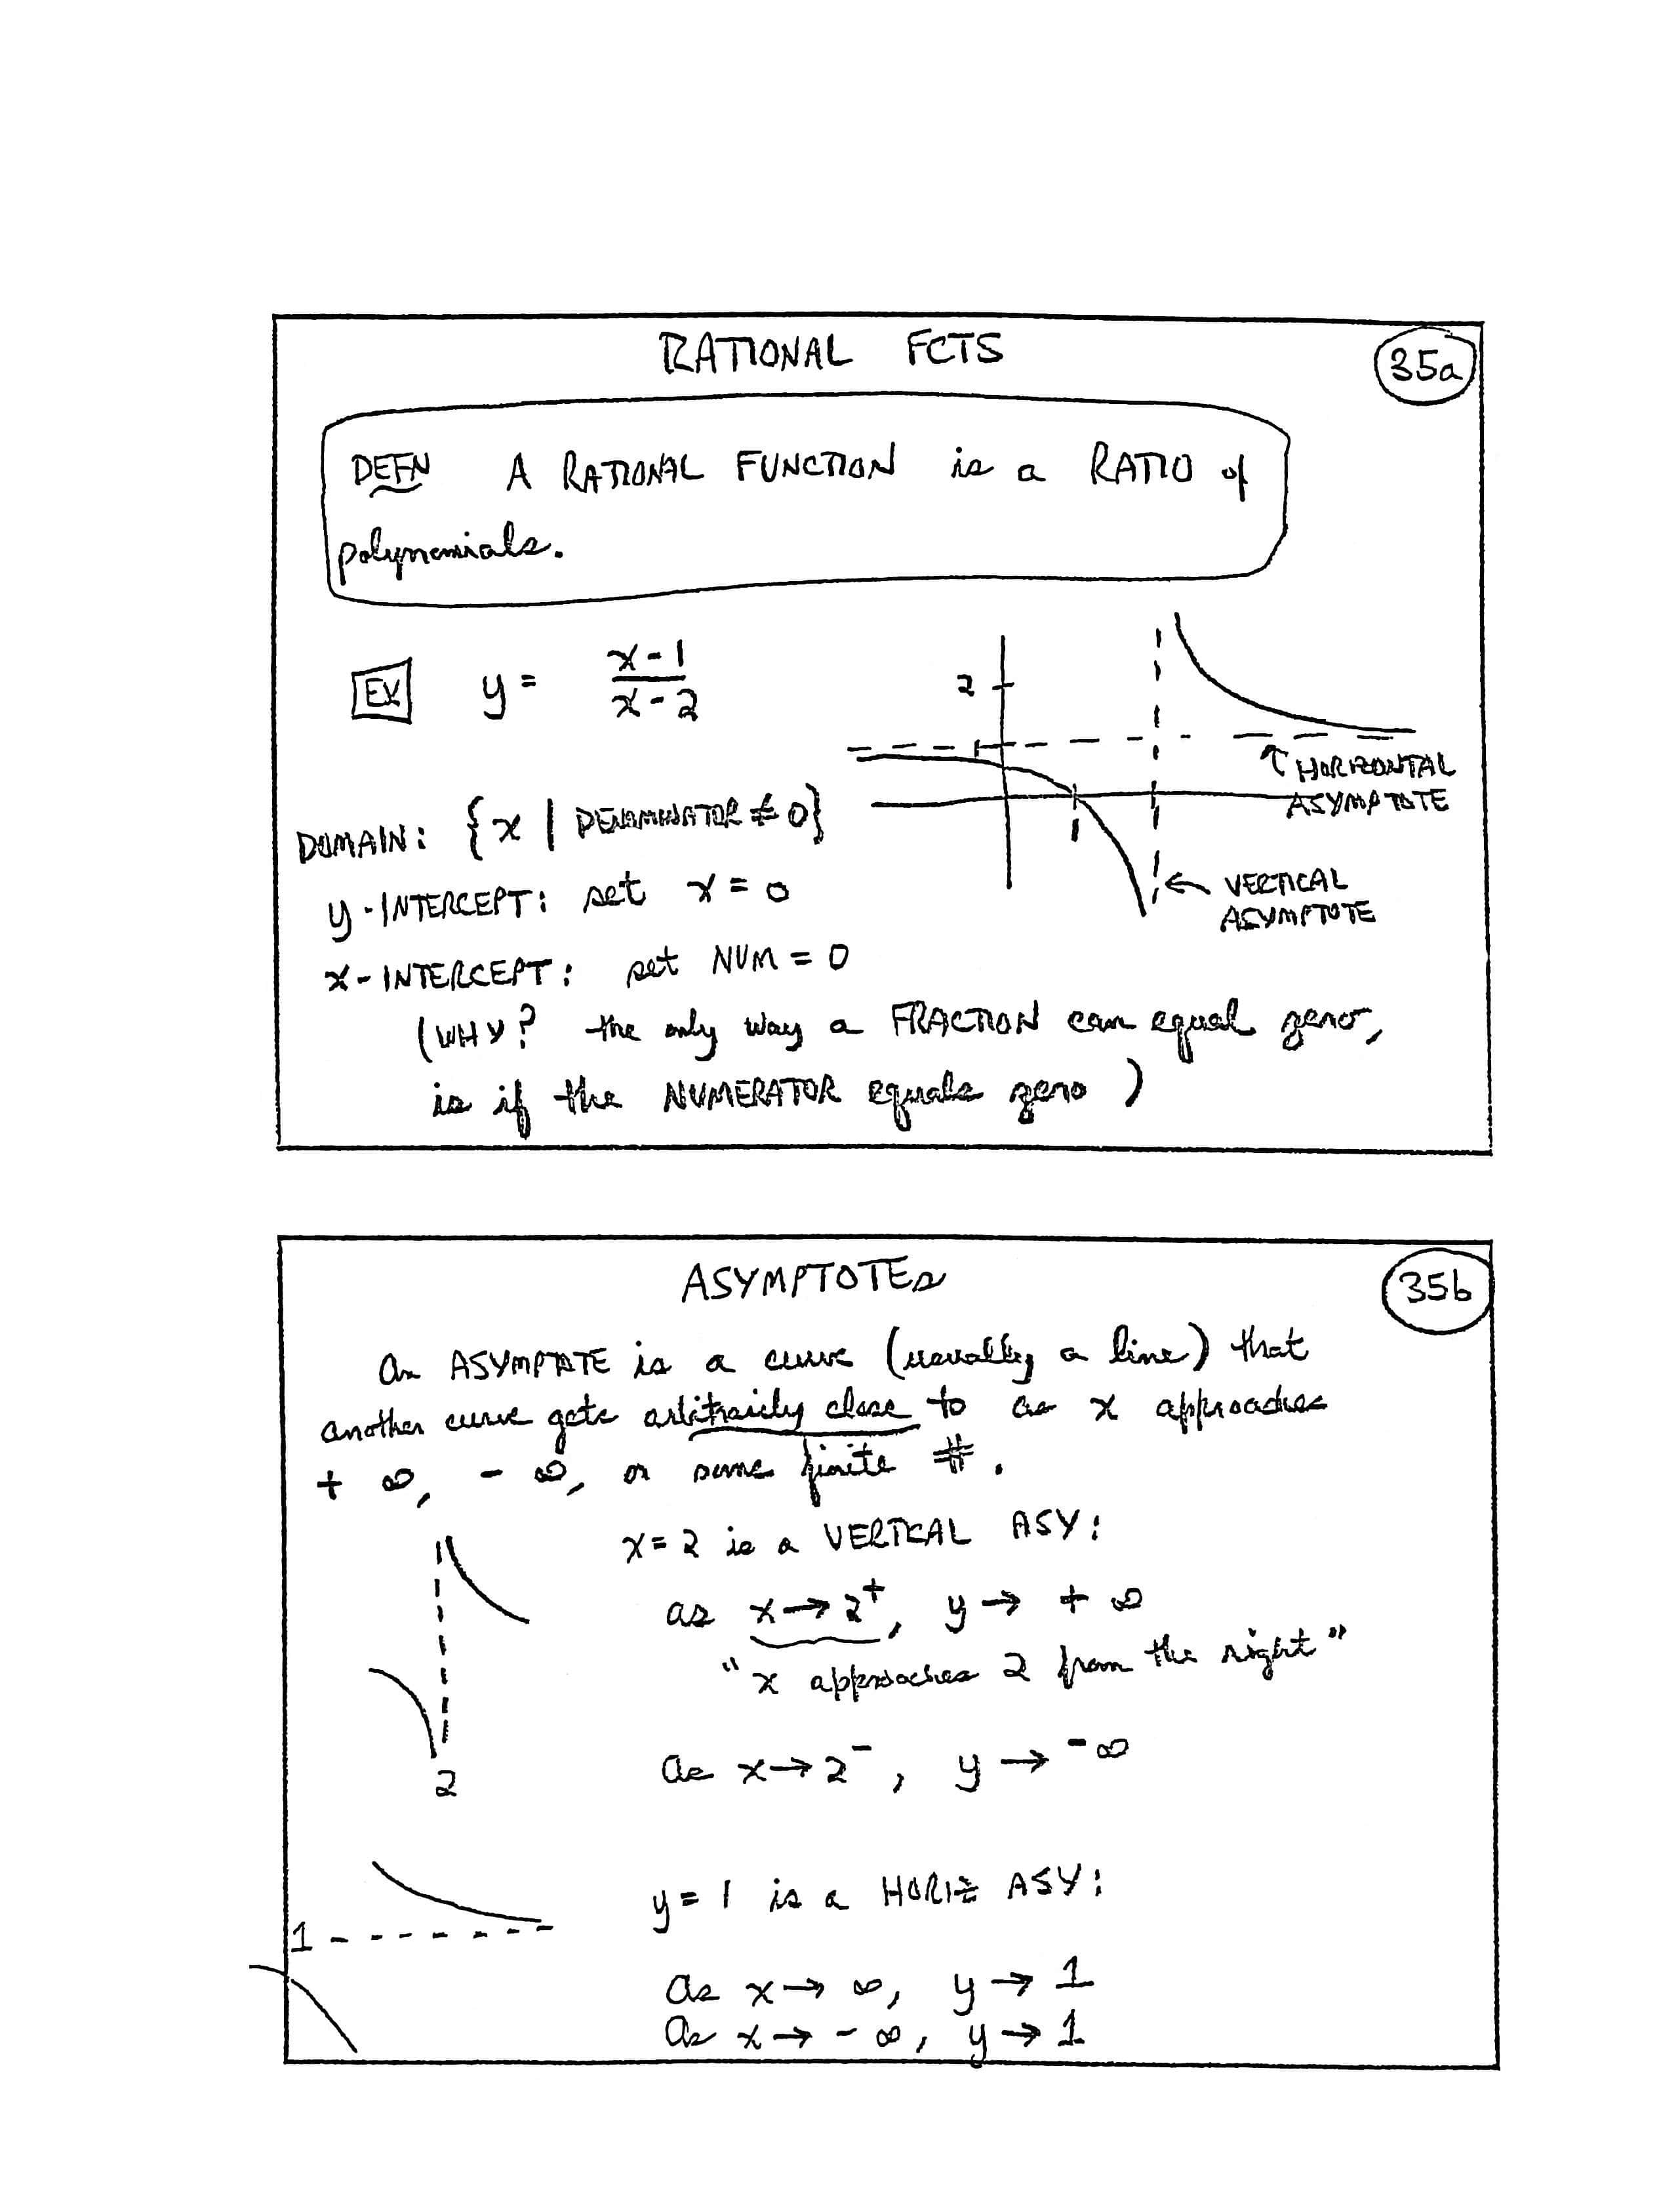 RATIONAL FCTS
35a
DEFN A RATIONAL FUNCTION is a RATIO of
polynomials.
EX y = x-1 / x-2
2
1
HORIZONTAL
ASYMPTOTE
1
VERTICAL
ASYMPTOTE
DOMAIN: {x | DENOMINATOR ≠ 0}
y-INTERCEPT: set x = 0
x-INTERCEPT: set NUM = 0
(WHY? the only way a FRACTION can equal zero,
is if the NUMERATOR equals zero)
ASYMPTOTES
35b
An ASYMPTOTE is a curve (usually a line) that
another curve gets arbitrarily close to as x approaches
+ ∞, - ∞, or some finite #.
x = 2 is a VERTICAL ASY:
as x → 2⁺, y → + ∞
"x approaches 2 from the right"
as x → 2⁻, y → -∞
2
y = 1 is a HORIZ ASY:
1
as x → ∞, y → 1
as x → - ∞, y → 1